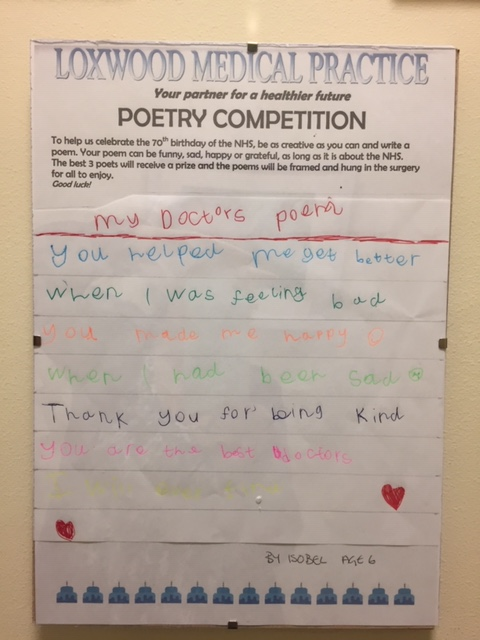 LOXWOOD MEDICAL PRACTICE
Your partner for a healthier future
POETRY COMPETITION
To help us celebrate the 70th birthday of the NHS, be as creative as you can and write a
poem. Your poem can be funny, sad, happy or grateful, as long as it is about the NHS.
The best 3 poets will receive a prize and the poems will be framed and hung in the surgery
for all to enjoy.
Good luck!
my Doctors poem
You helped me get better
when I was feeling bad
you made me happy
when I had been sad
Thank you for being kind
you are the best doctors
I
BY ISOBEL AGE 6